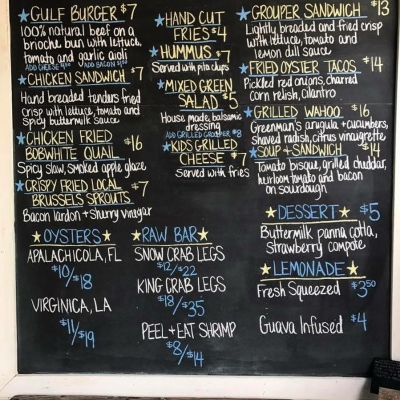 GULF BURGER $7
100% natural beef on a
brioche bun with lettuce,
tomato and garlic aioli
CHICKEN SANDWICH $7
Hand breaded tenders fried
crisp with lettuce, tomato and
Spicy buttermilk sauce
CHICKEN FRIED
BOBWHITE QUAIL $16
Spicy slaw, smoked apple glaze
CRISPY FRIED LOCAL
BRUSSELS SPROUTS $7
Bacon lardon + sherry vinegar
HAND CUT
FRIES $4
HUMMUS $7
Served with pita chips
MIXED GREEN
SALAD $5
House made balsamic
dressing
ADD GRILLED GROUPER $8
KIDS GRILLED
CHEESE $7
Served with fries
GROUPER SANDWICH $13
Lightly breaded and fried crisp
with lettuce, tomato and
lemon dill sauce
FRIED OYSTER TACOS $14
Pickled red onions, charred
corn relish, cilantro
GRILLED WAHOO $16
Greenman's arugula + cucumbers,
shaved radish, citrus vinaigrette
SOUP + SANDWICH $14
Tomato bisque, grilled cheddar,
heirloom tomato and bacon
on sourdough
OYSTERS
APALACHICOLA, FL
$10/$18
VIRGINICA, LA
$11/$19
RAW BAR
SNOW CRAB LEGS
$12/$22
KING CRAB LEGS
$18/$35
PEEL + EAT SHRIMP
$8/$14
DESSERT $5
Buttermilk panna cotta,
strawberry compote
LEMONADE
Fresh Squeezed $3.50
Guava Infused $4